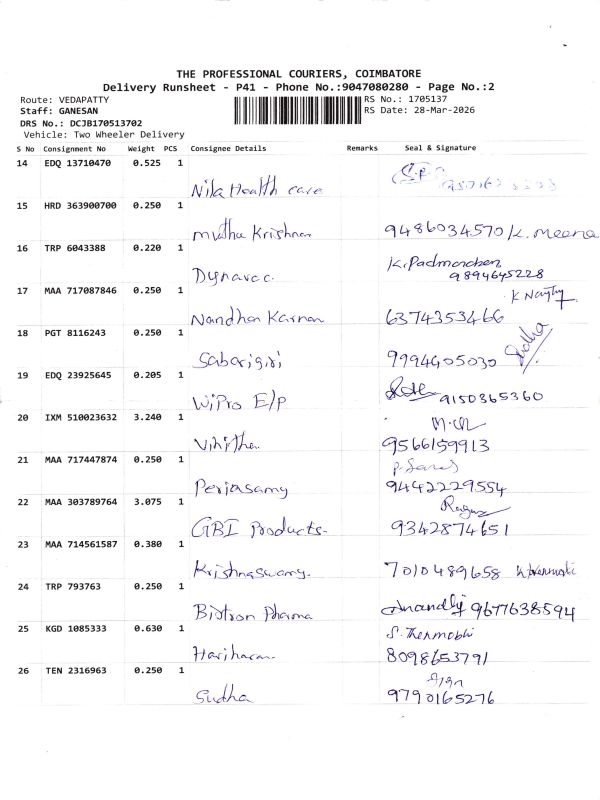 THE PROFESSIONAL COURIERS, COIMBATORE
Delivery Runsheet - P41 - Phone No.:9047080280 - Page No.:2
Route: VEDAPATTY
Staff: GANESAN
DRS No.: DCJB170513702
Vehicle: Two Wheeler Delivery
RS No.: 1705137
RS Date: 28-Mar-2026
S No Consignment No Weight PCS Consignee Details Remarks Seal & Signature
14 EDQ 13710470 0.525 1
Nila Health care
15 HRD 363900700 0.250 1
Muthu Krishnan 9486034570 K. Meena
16 TRP 6043388 0.220 1
Dynavac. K. Padmanaban
9894645228
17 MAA 717087846 0.250 1
Nandha Karnan 6374353466
18 PGT 8116243 0.250 1
Sabarigiri 9994405030 Radha
19 EDQ 23925645 0.205 1
WiPro E/P 9150365360
20 IXM 510023632 3.240 1
9566159913
21 MAA 717447874 0.250 1
Periasamy 9442229554
22 MAA 303789764 3.075 1
GBI Products- 9342874651
23 MAA 714561587 0.380 1
Krishnaswamy. 7010489658
24 TRP 793763 0.250 1
Biotron Pharma 9677638594
25 KGD 1085333 0.630 1
Hariharan 8098653791
26 TEN 2316963 0.250 1
Sudha 9790165276